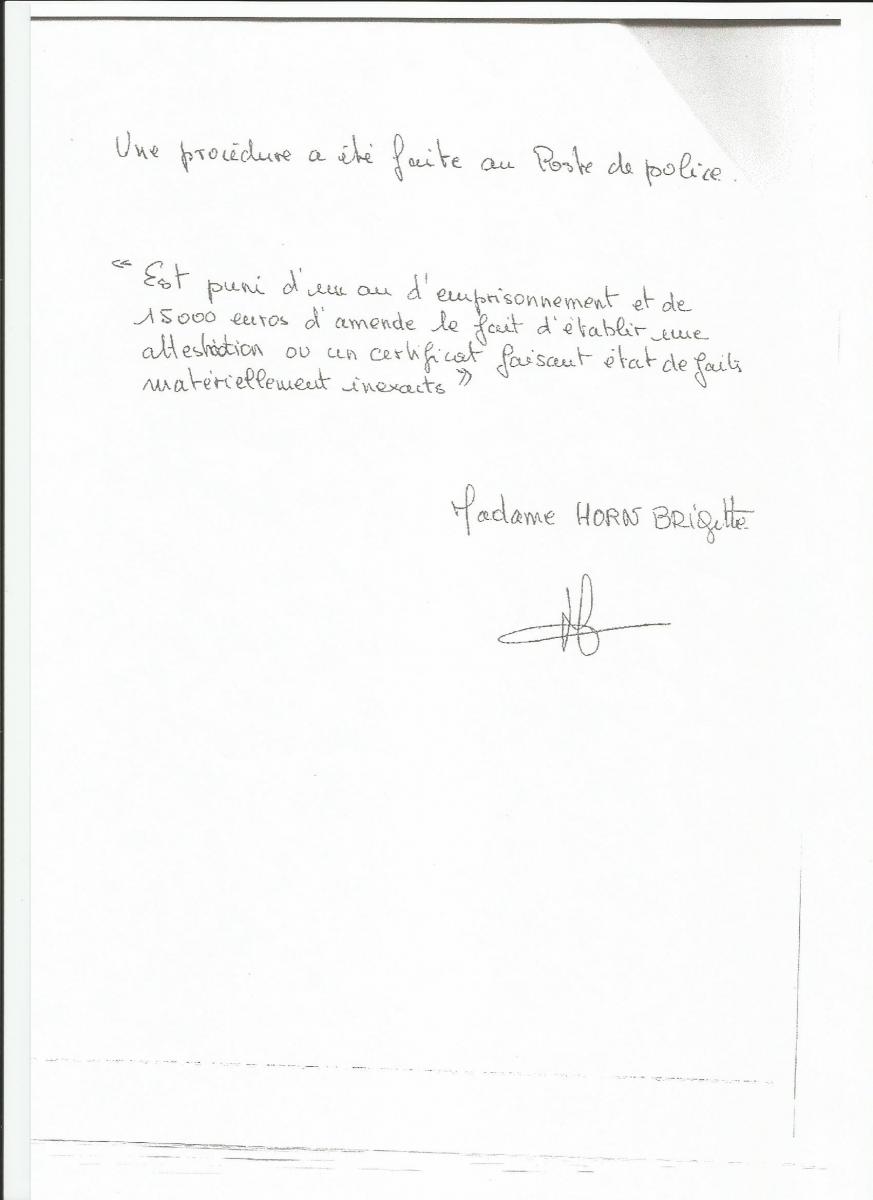 Une procédure a été faite au Poste de police.
« Est puni d'un an d'emprisonnement et de
15000 euros d'amende le fait d'établir une
attestation ou un certificat faisant état de faits
matériellement inexacts »
Madame HORN BRIGitte